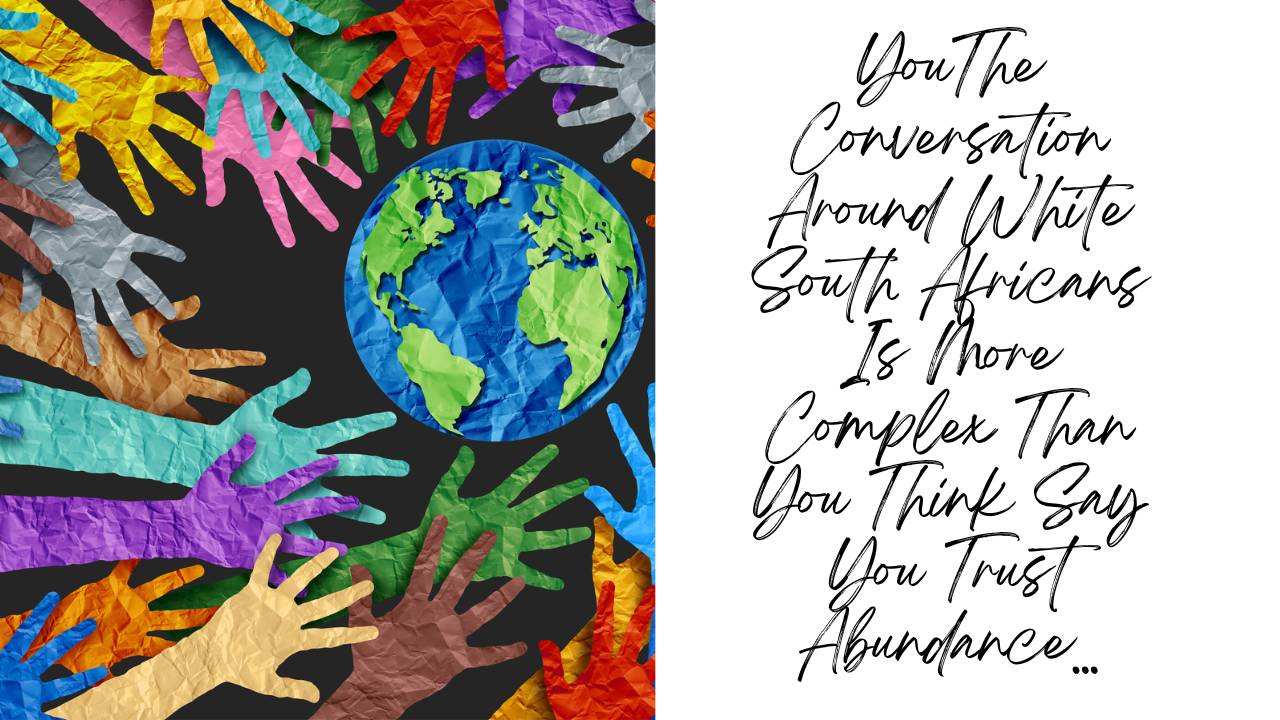 YouThe
Conversation
Around White
South Africans
Is More
Complex Than
You Think Say
You Trust
Abundance...